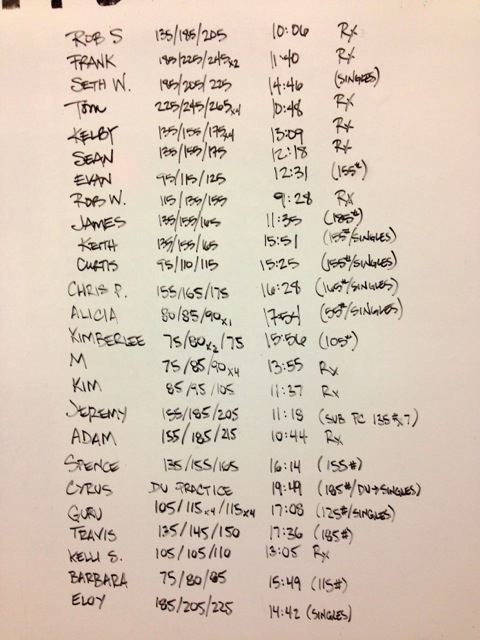 ROB S 135/185/205 10:06 Rx
FRANK 185/225/245x2 11:40 Rx
SETH W. 185/205/225 14:46 (SINGLES)
TOM 225/245/265x4 10:48 Rx
KELBY 135/155/175x4 13:09 Rx
SEAN 135/155/175 12:18 Rx
EVAN 95/115/125 12:31 (155#)
ROB W. 115/135/155 9:28 Rx
JAMES 135/155/165 11:35 (185#)
KEITH 135/155/165 15:51 (155#/SINGLES)
CURTIS 95/110/115 15:25 (155#/SINGLES)
CHRIS P. 155/165/175 16:28 (165#/SINGLES)
ALICIA 80/85/90x1 17:54 (55#/SINGLES)
KIMBERLEE 75/80x2/75 15:56 (105#)
M 75/85/90x4 13:55 Rx
KIM 85/95/105 11:37 Rx
JEREMY 155/185/205 11:18 (SUB PC 135#x7)
ADAM 155/185/215 10:44 Rx
SPENCE 135/155/165 16:14 (155#)
CYRUS DU PRACTICE 19:49 (185#/DU→SINGLES)
GURU 105/115x4/115x4 17:08 (125#/SINGLES)
TRAVIS 135/145/150 17:36 (185#)
KELLI S. 105/105/110 13:05 Rx
BARBARA 75/80/85 15:49 (115#)
ELOY 185/205/225 14:42 (SINGLES)